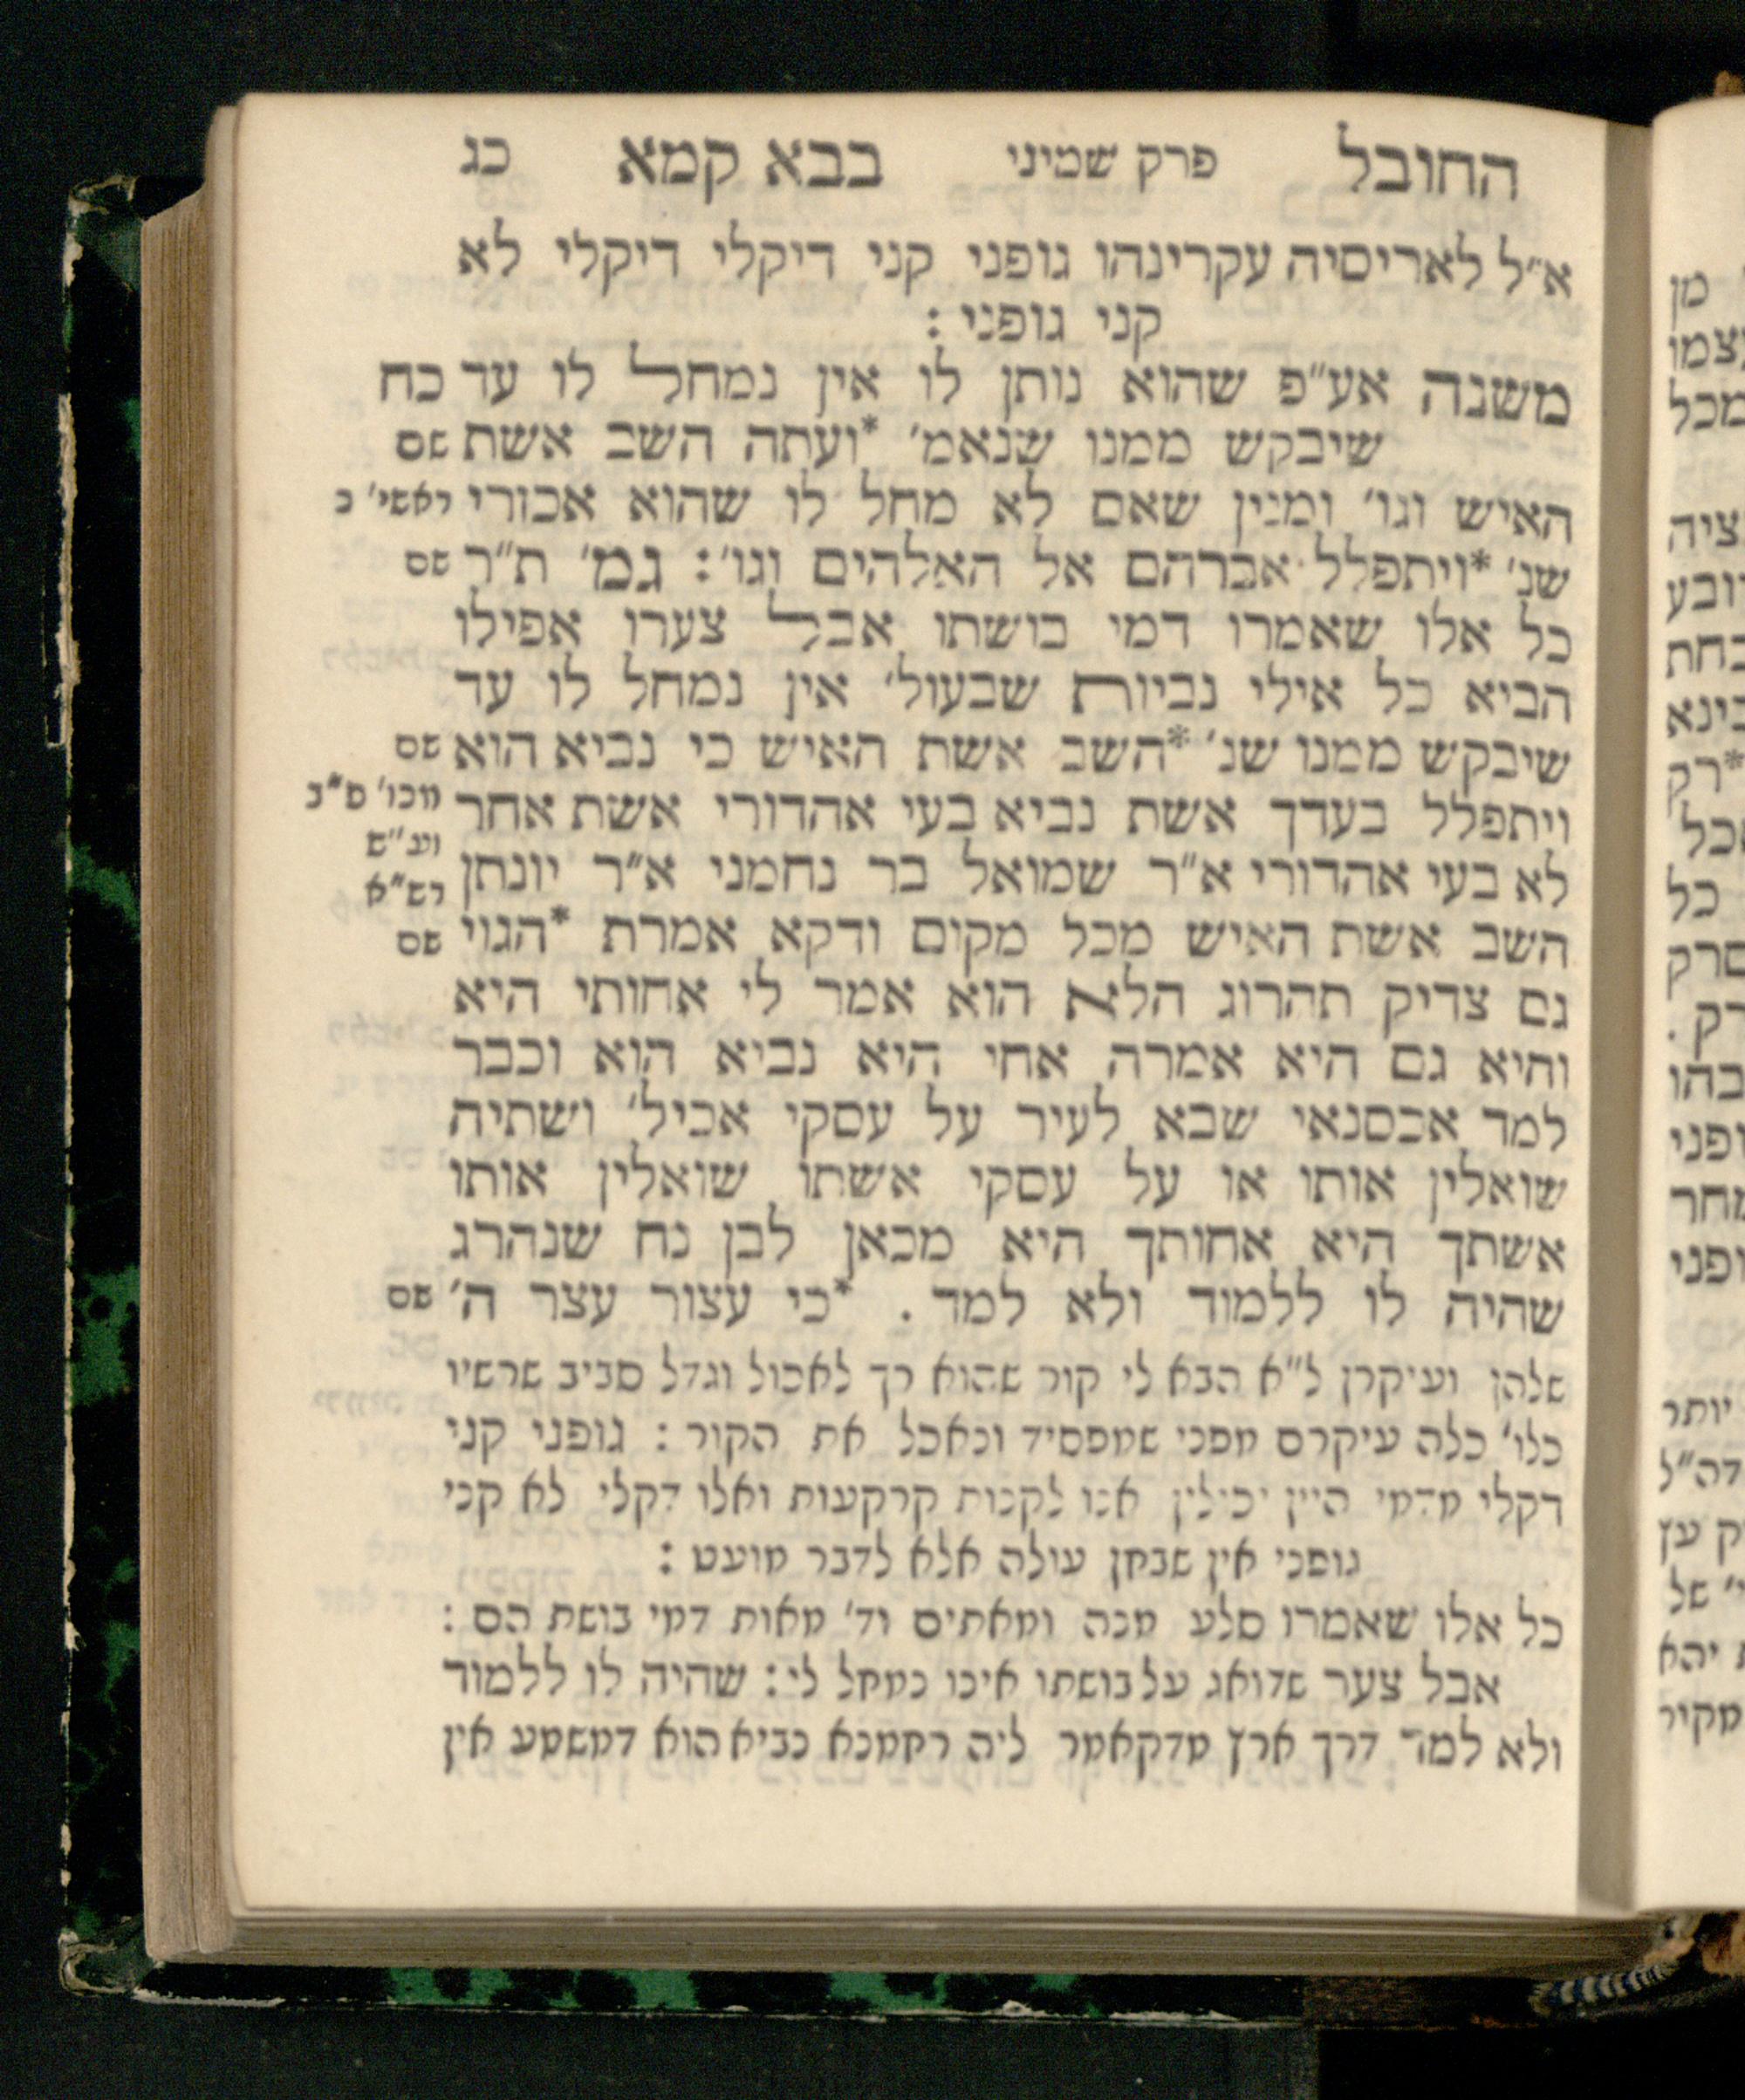 החובל פרק שמיני בבא קמא כג
א״ל לאריסיה עקרינהו גופני קני דיקלי דיקלי לא
קני גופני :
משנה אע״פ שהוא נותן לו אין נמחל לו עד כח
שיבקש ממנו שנאמ׳ *ועתה השב אשת שם
האיש וגו׳ ומנין שאם לא מחל לו שהוא אכזרי ראשי׳ כ
שנ׳ *ויתפלל אברהם אל האלהים וגו׳: גמ׳ ת״ר שם
כל אלו שאמרו דמי בושתו אבל צערו אפילו
הביא כל אילי נביות שבעול׳ אין נמחל לו עד
שיבקש ממנו שנ׳ *השב אשת האיש כי נביא הוא שם
ויתפלל בעדך אשת נביא בעי אהדורי אשת אחר מכו׳ פ״ב
וע״ש
לא בעי אהדורי א״ר שמואל בר נחמני א״ר יונתן רש״א
השב אשת האיש מכל מקום ודקא אמרת *הגוי שם
גם צדיק תהרוג הלא הוא אמר לי אחותי היא
והיא גם היא אמרה אחי היא נביא הוא וכבר
למד אכסנאי שבא לעיר על עסקי אכיל׳ ושתיה
שואלין אותו או על עסקי אשתו שואלין אותו
אשתך היא אחותך היא מכאן לבן נח שנהרג
שהיה לו ללמוד ולא למד . *כי עצור עצר ה׳ שם
שלהן ועיקרן ל״א הבא לי קור שהוא רך לאכול וגדל סביב שרשיו
כלו׳ כלה עיקרם מפני שמפסיד ונאכל את הקור : גופני קני
דקלי מדמי היין יכולין אנו לקנות קרקעות ואלו דקלי לא קני
גופני אין שבחן עולה אלא לדבר מועט :
כל אלו שאמרו סלע מנה ומאתים וד׳ מאות דמי בושת הם :
אבל צער שדואג על בושתו אינו נמחל לי: שהיה לו ללמוד
ולא למד דרך ארץ מדקאמר ליה רחמנא נביא הוא דמשמע אין
מן